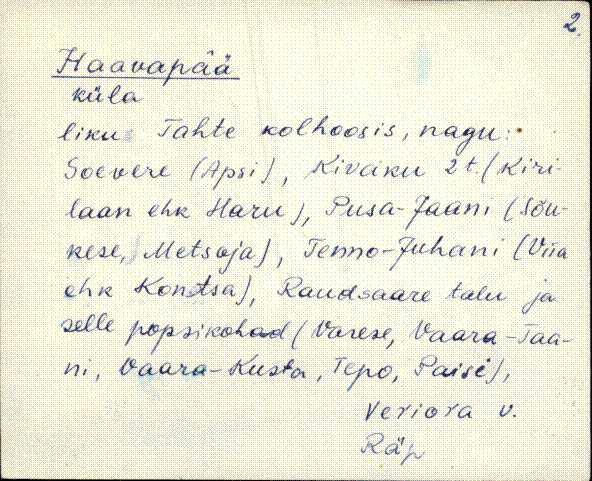 2.
Haavapää
küla
liku Tahte kolhoosis, nagu:
Soevere (Apsi), Kivaku 2 t. (Kiri-
laan ehk Haru), Pusa-Jaani (Sõu-
kese, Metsoja), Tenno-Juhani (Viia
ehk Konotsa), Raudsaare talu ja
selle popsikohad (Varese, Vaara-Taa-
ni, Vaara-Kusta, Tepo, Paise),
Veriora v.
Räp